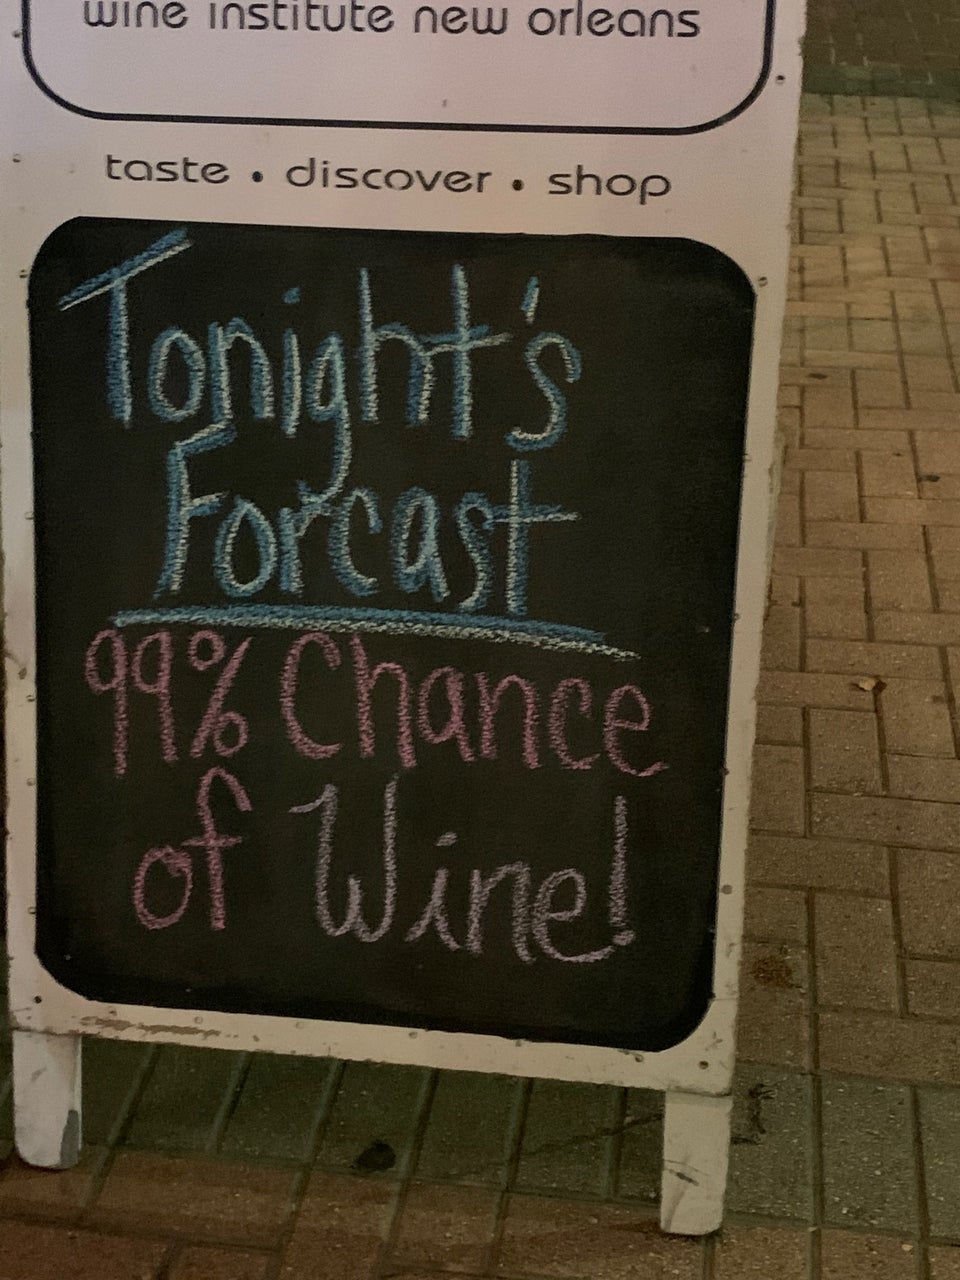 wine institute new orleans
taste • discover • shop
Tonight's
Forcast
99% Chance
of Wine!